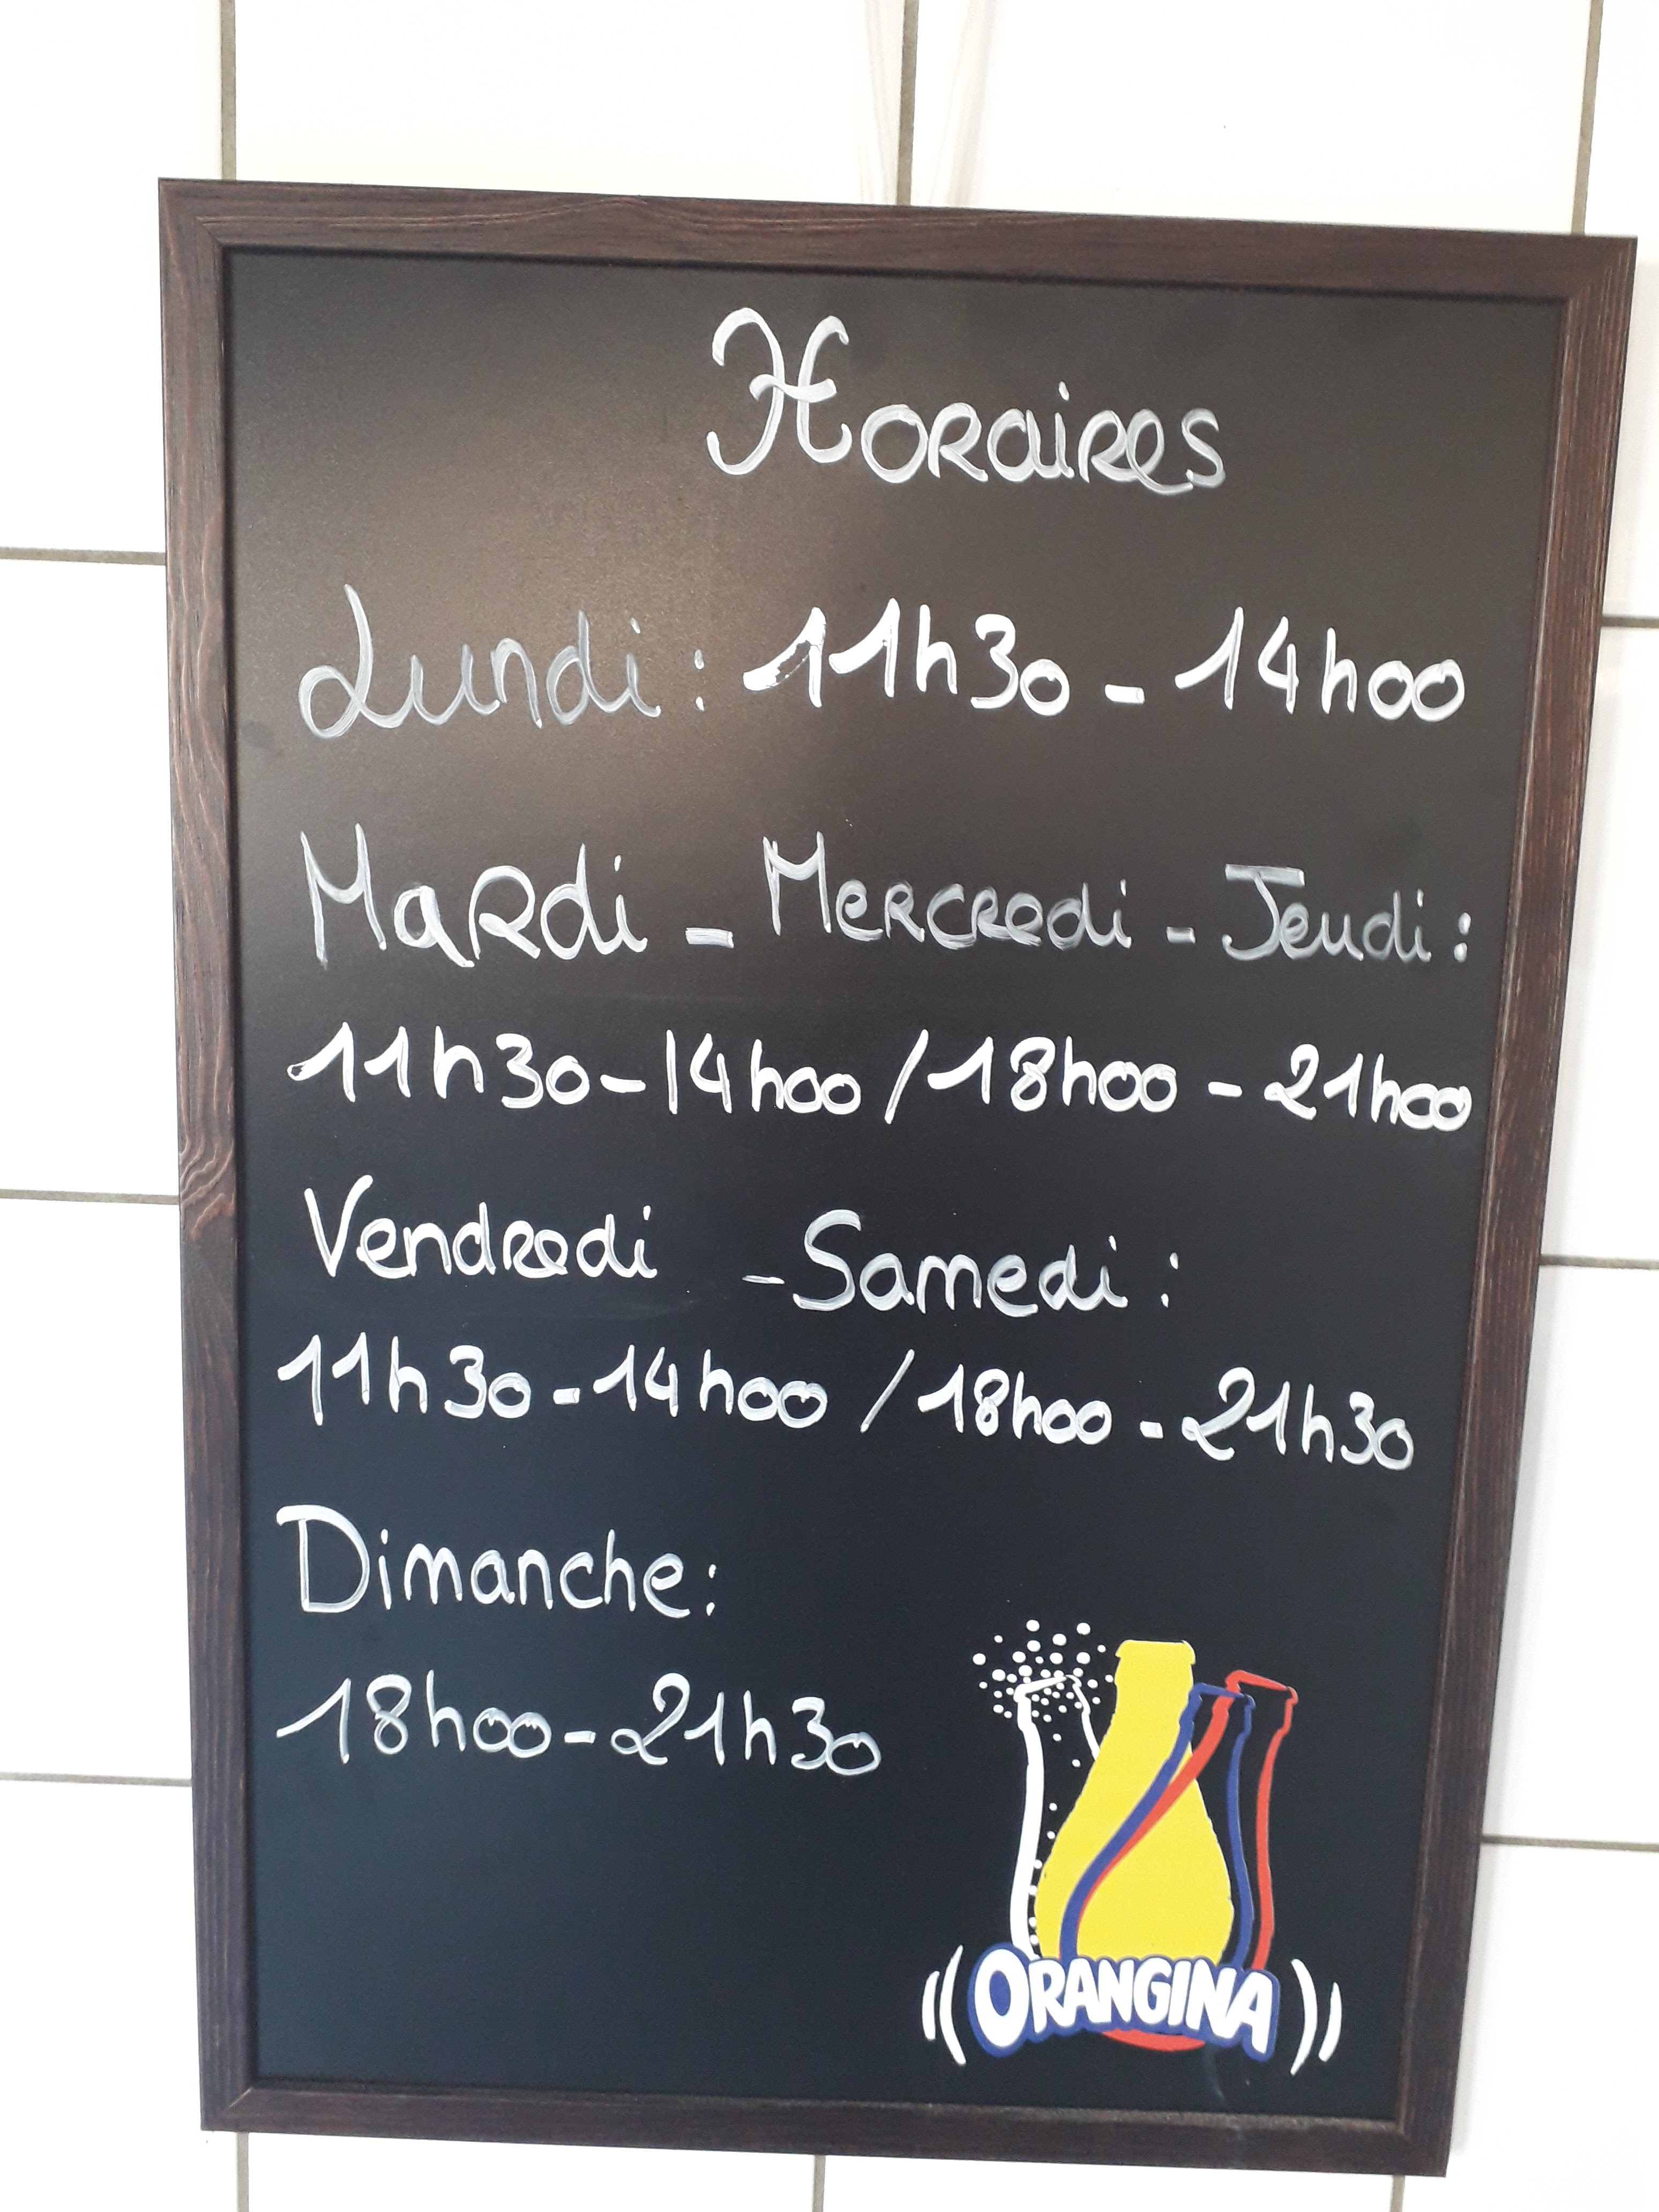 Horaires
Lundi : 11h30 - 14h00
Mardi - Mercredi - Jeudi :
11h30 - 14h00 / 18h00 - 21h00
Vendredi - Samedi :
11h30 - 14h00 / 18h00 - 21h30
Dimanche :
18h00 - 21h30
ORANGINA